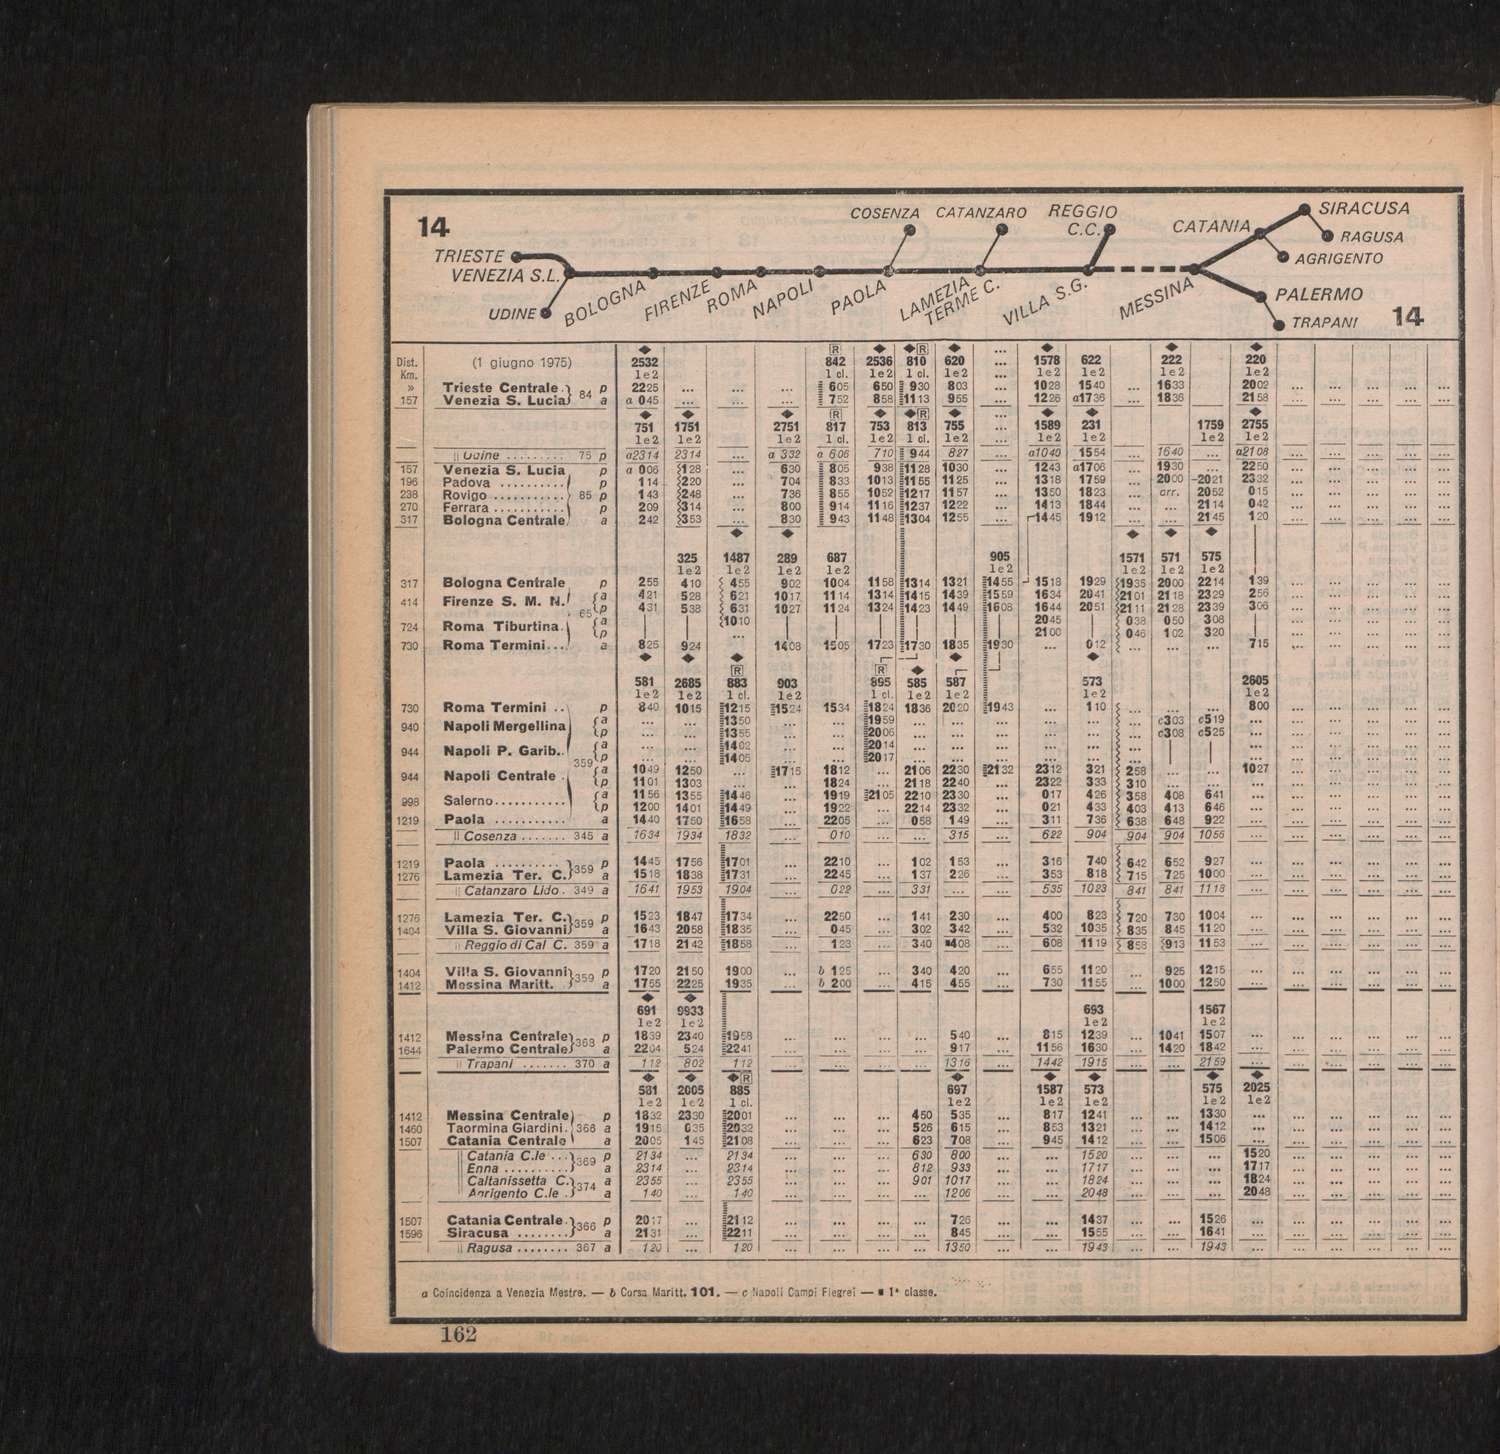 14
COSENZA CATANZARO REGGIO C.C. CATANIA SIRACUSA
RAGUSA
TRIESTE
VENEZIA S.L.
AGRIGENTO
UDINE BOLOGNA FIRENZE ROMA NAPOLI PAOLA LAMEZIA TERME C. VILLA S.G. MESSINA PALERMO
TRAPANI 14
Dist. (1 giugno 1975) 2532 842 2536 810 620 ... 1578 622 222 220
Km. 1e2 1 cl. 1e2 1 cl. 1e2 ... 1e2 1e2 1e2 1e2
» Trieste Centrale 84 p 2225 ... ... ... 605 650 930 803 ... 1028 1540 ... 1633 2002 ... ... ... ... ...
157 Venezia S. Lucia a a 045 ... ... ... 752 858 1113 955 ... 1226 a1736 ... 1836 2158 ... ... ... ... ...
751 1751 2751 817 753 813 755 ... 1589 231 1759 2755
1e2 1e2 1e2 1 cl. 1e2 1 cl. 1e2 ... 1e2 1e2 1e2 1e2
Udine ......... 75 p a2314 2314 ... a 332 a 606 710 944 827 ... a1040 1554 ... 1640 ... a2108 ... ... ... ... ...
157 Venezia S. Lucia p a 006 128 ... 630 805 938 1128 1030 ... 1243 a1706 ... 1930 ... 2250 ... ... ... ... ...
196 Padova .......... p 114 220 ... 704 833 1013 1155 1125 ... 1318 1759 ... 2000 2021 2332 ... ... ... ... ...
238 Rovigo ........... 85 p 143 248 ... 736 855 1052 1217 1157 ... 1350 1823 ... arr. 2052 015 ... ... ... ... ...
270 Ferrara ........... p 209 314 ... 800 914 1116 1237 1222 ... 1413 1844 ... ... 2114 042 ... ... ... ... ...
317 Bologna Centrale a 242 353 ... 830 943 1148 1304 1255 ... 1445 1912 ... ... 2145 120 ... ... ... ... ...
325 1487 289 687 905 1571 571 575
1e2 1e2 1e2 1e2 1e2 1e2 1e2 1e2
317 Bologna Centrale p 256 410 455 902 1004 1158 1314 1321 1455 1518 1929 1935 2000 2214 139 ... ... ... ... ...
414 Firenze S. M. N. a 421 528 621 1017 1114 1314 1415 1439 1559 1634 2041 2101 2118 2329 256 ... ... ... ... ...
65 p 431 538 631 1027 1124 1324 1423 1449 1608 1644 2051 2111 2128 2339 306 ... ... ... ... ...
724 Roma Tiburtina a 1010 2045 038 050 308 ... ... ... ... ...
p ... 2100 046 102 320 ... ... ... ... ...
730 Roma Termini... a 825 924 1408 1505 1723 1730 1835 1930 ... 012 ... ... ... 715 ... ... ... ... ...
581 2685 883 903 895 585 587 573 2605
1e2 1e2 1 cl. 1e2 1 cl. 1e2 1e2 1e2 1e2
730 Roma Termini .. p 840 1015 1215 1524 1534 1824 1836 2020 1943 ... 110 ... ... ... 800 ... ... ... ... ...
940 Napoli Mergellina a ... ... 1350 ... ... 1959 ... ... ... ... ... ... c303 c519 ... ... ... ... ... ...
p ... ... 1355 ... ... 2006 ... ... ... ... ... ... c308 c525 ... ... ... ... ... ...
944 Napoli P. Garib.. a ... ... 1402 ... ... 2014 ... ... ... ... ... ... ... ... ... ... ... ...
359 p ... ... 1405 ... ... 2017 ... ... ... ... ... ... ... ... ... ... ... ...
944 Napoli Centrale . a 1049 1250 ... 1715 1812 ... 2106 2230 2132 2312 321 258 ... ... 1027 ... ... ... ... ...
p 1101 1303 ... ... 1824 ... 2118 2240 ... 2322 333 310 ... ... ... ... ... ... ... ...
998 Salerno........... a 1156 1355 1446 ... 1919 2105 2210 2330 ... 017 426 358 408 641 ... ... ... ... ... 408
p 1200 1401 1449 ... 1922 ... 2214 2332 ... 021 433 403 413 646 ... ... ... ... ... ...
1219 Paola ........... a 1440 1750 1658 ... 2205 ... 058 149 ... 311 736 638 648 922 ... ... ... ... ... ...
Cosenza ....... 345 a 1634 1934 1832 ... 010 ... ... 315 ... 622 904 904 904 1055 ... ... ... ... ... ...
1219 Paola .......... 359 p 1445 1756 1701 ... 2210 ... 102 153 ... 316 740 642 652 927 ... ... ... ... ... ...
1276 Lamezia Ter. C. a 1518 1838 1731 ... 2245 ... 137 226 ... 353 818 715 725 1000 ... ... ... ... ... ...
Catanzaro Lido . 349 a 1641 1953 1904 ... 022 ... 331 ... ... 535 1023 841 841 1118 ... ... ... ... ... ...
1276 Lamezia Ter. C. 359 p 1523 1847 1734 ... 2250 ... 141 230 ... 400 823 720 730 1004 ... ... ... ... ... ...
1404 Villa S. Giovanni a 1643 2058 1835 ... 045 ... 302 342 ... 532 1035 835 845 1120 ... ... ... ... ... ...
Reggio di Cal C. 359 a 1718 2142 1858 ... 123 ... 340 ■408 ... 608 1119 858 913 1153 ... ... ... ... ... ...
1404 Villa S. Giovanni 359 p 1720 2150 1900 ... b 125 ... 340 420 ... 655 1120 ... 925 1215 ... ... ... ... ... ...
1412 Messina Maritt. a 1755 2225 1935 ... b 200 ... 415 455 ... 730 1155 ... 1000 1250 ... ... ... ... ... ...
691 9933 693 1567
1e2 1e2 1e2 1e2
1412 Messina Centrale 368 p 1839 2340 1958 ... ... ... ... 540 ... 815 1239 ... 1041 1507 ... ... ... ... ... ...
1644 Palermo Centrale a 2204 524 2241 ... ... ... ... 917 ... 1156 1630 ... 1420 1842 ... ... ... ... ... ...
Trapani ....... 370 a 112 802 112 ... ... ... ... 1316 ... 1442 1915 ... ... 2159 ... ... ... ... ... ...
581 2005 885 697 1587 573 575 2025
1e2 1e2 1 cl. 1e2 1e2 1e2 1e2 1e2
1412 Messina Centrale p 1832 2330 2001 ... ... ... 450 535 ... 817 1241 ... ... 1330 ... ... ... ... ... ...
1460 Taormina Giardini. 368 a 1915 035 2032 ... ... ... 526 615 ... 853 1321 ... ... 1412 ... ... ... ... ... ...
1507 Catania Centrale a 2005 145 2108 ... ... ... 623 708 ... 945 1412 ... ... 1506 ... ... ... ... ... ...
Catania C.le ... 369 p 2134 ... 2134 ... ... ... 630 800 ... ... 1520 ... ... ... 1520 ... ... ... ... ...
Enna .......... a 2314 ... 2314 ... ... ... 812 933 ... ... 1717 ... ... ... 1717 ... ... ... ... ...
Caltanissetta C. 374 a 2355 ... 2355 ... ... ... 901 1017 ... ... 1824 ... ... ... 1824 ... ... ... ... ...
Agrigento C.le . a 140 ... 140 ... ... ... ... 1206 ... ... 2048 ... ... ... 2048 ... ... ... ... ...
1507 Catania Centrale 366 p 2017 ... 2112 ... ... ... ... 726 ... ... 1437 ... ... 1526 ... ... ... ... ... ...
1596 Siracusa ........ a 2131 ... 2211 ... ... ... ... 845 ... ... 1555 ... ... 1641 ... ... ... ... ... ...
Ragusa ........ 367 a 120 ... 120 ... ... ... ... 1350 ... ... 1943 ... ... 1943 ... ... ... ... ... ...
a Coincidenza a Venezia Mestre. — b Corsa Maritt. 101. — c Napoli Campi Flegrei — ■ 1ª classe.
162